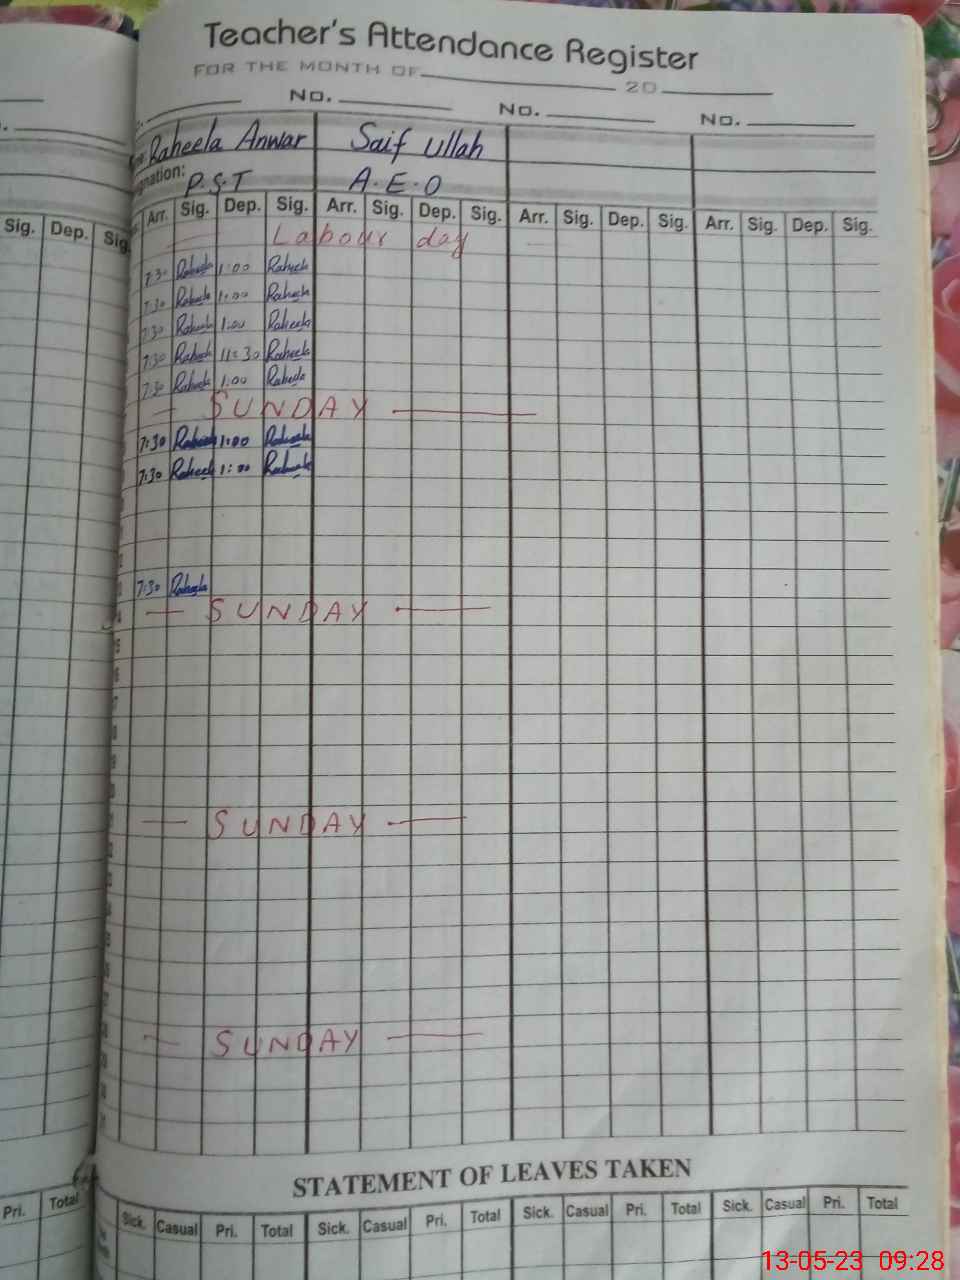 Teacher's Attendance Register
FOR THE MONTH OF 20
No. No. No.
Raheela Anwar Saif ullah
P.S.T A.E.O
Sig. Dep. Sig. Arr. Sig. Dep. Sig. Arr. Sig. Dep. Sig. Arr. Sig. Dep. Sig. Arr. Sig. Dep. Sig.
Labour day
7:30 Raheela 1:00 Raheela
7:30 Raheela 1:00 Raheela
7:30 Raheela 1:00 Raheela
7:30 Raheela 11:30 Raheela
7:30 Raheela 1:00 Raheela
SUNDAY
7:30 Raheela 1:00 Raheela
7:30 Raheela 1:00 Raheela
7:30 Raheela
SUNDAY
SUNDAY
SUNDAY
STATEMENT OF LEAVES TAKEN
Pri. Total Sick. Casual Pri. Total Sick. Casual Pri. Total Sick. Casual Pri. Total Sick. Casual Pri. Total
13-05-23 09:28